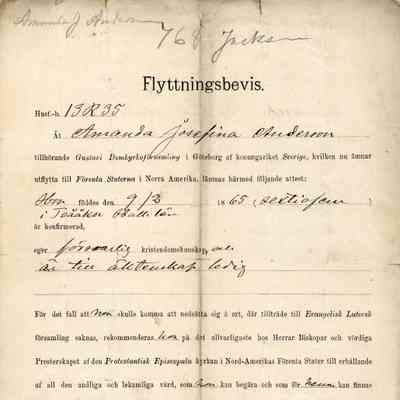 Amanda J Anderson
768 Jacks
Flyttningsbevis.
Husf.-b. 13R35
Åt Amanda Josefina Anderson
tillhörande Gustavi Domkyrkoförsamling i Göteborg af konungariket Sverige, hvilken nu ämnar
utflytta till Förenta Staterna i Norra Amerika, lämnas härmed följande attest:
Hon föddes den 9/3 1865 (sextiofem)
i
är konfirmerad,
eger försvarlig kristendomskunskap, och
är till äktenskap ledig
För det fall att hon skulle komma att nedsätta sig å ort, där tillträde till Evangelisk Lutersk
församling saknas, rekommenderas hon på det allvarligaste hos Herrar Biskopar och vördiga
Presterskapet af den Protestantisk Episcopala Kyrkan i Nord-Amerikas Förenta Stater till erhållande
af all den andliga och lekamliga vård, som hon kan begära och som för henne kan finnas